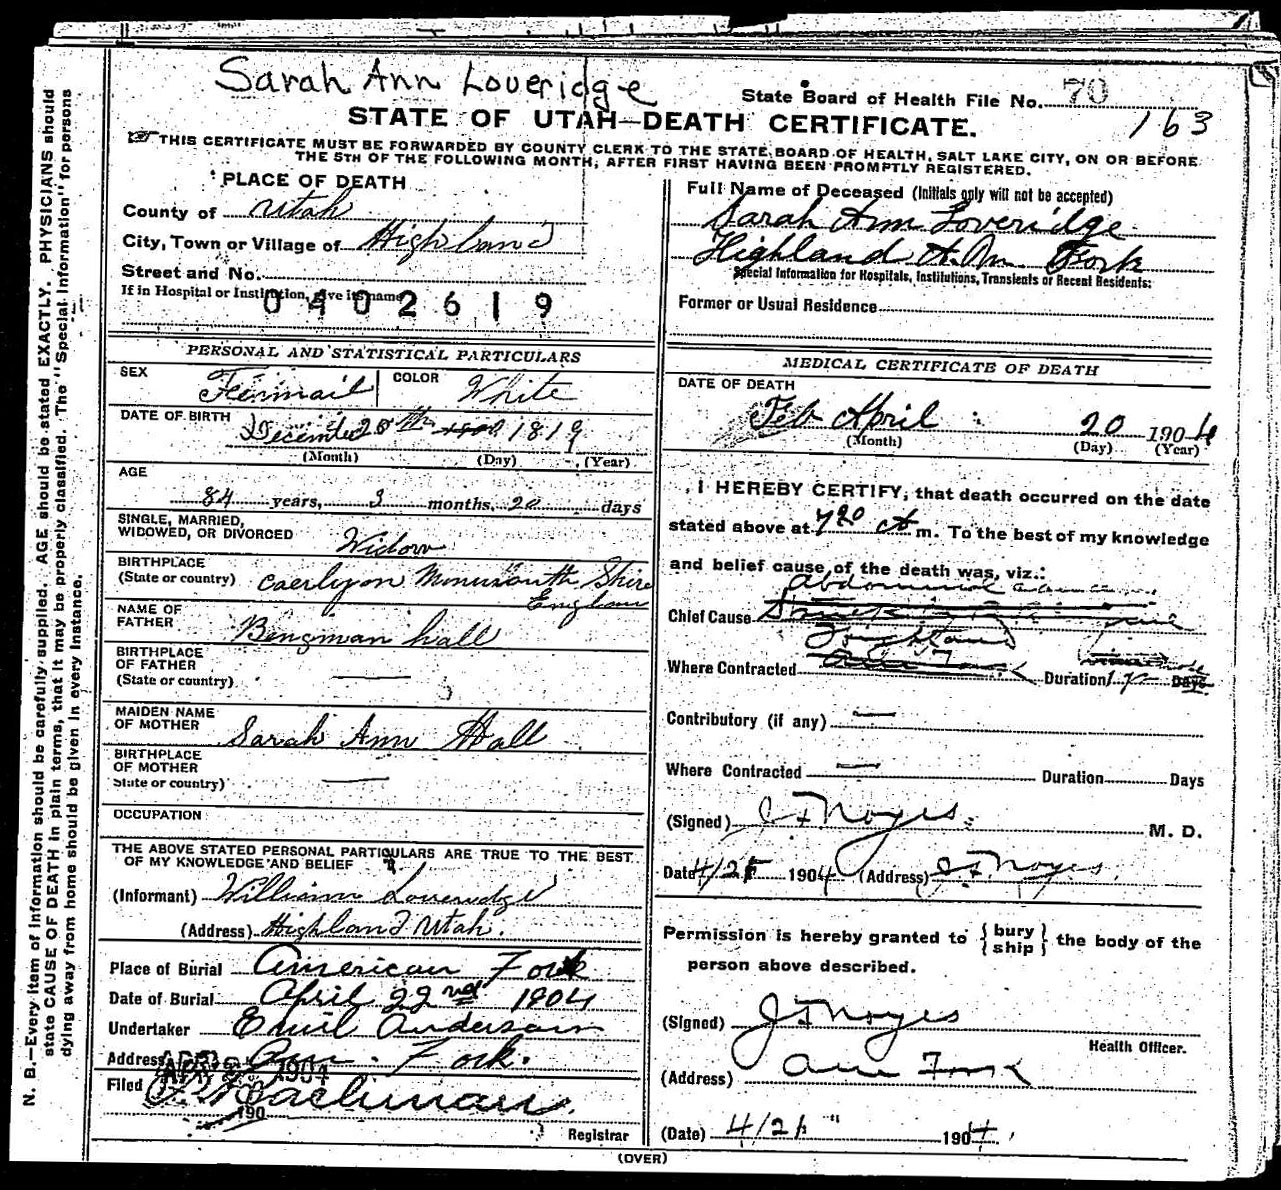 Sarah Ann Loveridge
State Board of Health File No. 70
163
STATE OF UTAH—DEATH CERTIFICATE.
THIS CERTIFICATE MUST BE FORWARDED BY COUNTY CLERK TO THE STATE BOARD OF HEALTH, SALT LAKE CITY, ON OR BEFORE
THE 5TH OF THE FOLLOWING MONTH, AFTER FIRST HAVING BEEN PROMPTLY REGISTERED.
PLACE OF DEATH
County of Utah
City, Town or Village of Highland
Street and No.
If in Hospital or Institution, give its name
0402619
Full Name of Deceased (Initials only will not be accepted)
Sarah Ann Loveridge
Highland Am Fork
Special Information for Hospitals, Institutions, Transients or Recent Residents:
Former or Usual Residence
PERSONAL AND STATISTICAL PARTICULARS
SEX Femail COLOR White
DATE OF BIRTH December 20th 1819
(Month) (Day) (Year)
AGE
84 years, 3 months, 20 days
SINGLE, MARRIED,
WIDOWED, OR DIVORCED Widow
BIRTHPLACE
(State or country) Caerlyon Monumouth Shire
Englan
NAME OF
FATHER Bengman hall
BIRTHPLACE
OF FATHER
(State or country) —
MAIDEN NAME
OF MOTHER Sarah Ann Hall
BIRTHPLACE
OF MOTHER
State or country) —
OCCUPATION
THE ABOVE STATED PERSONAL PARTICULARS ARE TRUE TO THE BEST
OF MY KNOWLEDGE AND BELIEF
(Informant) William Loveridge
(Address) Highland Utah.
Place of Burial American Fork
Date of Burial April 22nd 1904
Undertaker Emil Anderson
Address Am. Fork.
Filed
190
Registrar
MEDICAL CERTIFICATE OF DEATH
DATE OF DEATH
Feb April 20 1904
(Month) (Day) (Year)
I HEREBY CERTIFY, that death occurred on the date
stated above at 7 20 A m. To the best of my knowledge
and belief cause of the death was, viz.:
Abdominal
Chief Cause
Highland
Where Contracted Am Fork Duration 1 yr Days
Contributory (if any) —
Where Contracted — Duration Days
(Signed) J F Noyes M. D.
Date 4/21 1904 (Address) J F Noyes
Permission is hereby granted to {bury ship} the body of the
person above described.
(Signed) J F Noyes
Health Officer.
(Address) Am Fork
(Date) 4/21 1904.
(OVER)
N. B.—Every item of information should be carefully supplied. AGE should be stated EXACTLY. PHYSICIANS should
state CAUSE OF DEATH in plain terms, that it may be properly classified. The "Special Information" for persons
dying away from home should be given in every instance.